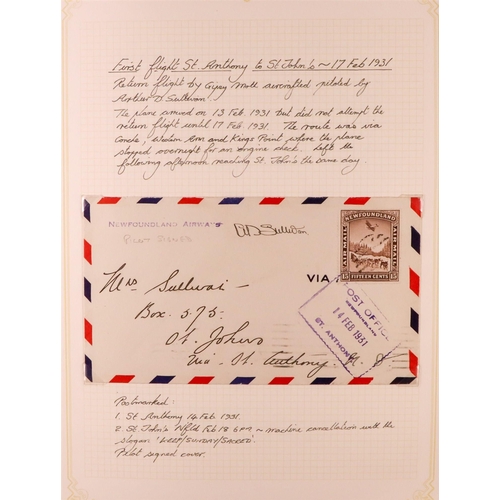 First flight St. Anthony to St John's ~ 17 Feb 1931
Return flight by Gypsy Moth aircraft piloted by
Arthur D Sullivan.
The plane arrived on 13 Feb 1931 but did not attempt the
return flight until 17 Feb 1931. The route was via
Conche, Western Arm and Kings Point where the plane
stopped overnight for an engine check. Left the
following afternoon reaching St. John's the same day.
NEWFOUNDLAND AIRWAYS
PILOT SIGNED
A D Sullivan
NEWFOUNDLAND
AIR MAIL
AIR MAIL
15 FIFTEEN CENTS 15
VIA
Mrs Sullivan
Box 575
St. Johns
Via St. Anthony
POST OFFICE
NEWFOUNDLAND
14 FEB 1931
ST. ANTHONY
Postmarked:
1. St Anthony 14 Feb 1931.
2. St John's Nfld Feb 18 6PM ~ machine cancellation with the
slogan 'KEEP/SUNDAY/SACRED'.
Pilot signed cover.